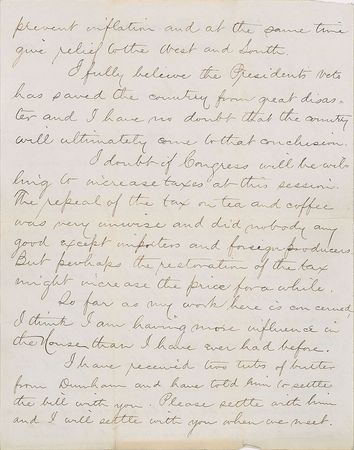 prevent inflation and at the same time
give relief to the West and South.
I fully believe the Presidents veto
has saved the country from great disas-
ter and I have no doubt that the country
will ultimately come to that conclusion.
I doubt if Congress will be wil-
ling to increase taxes at this session.
The repeal of the tax on tea and coffee
was very unwise and did nobody any
good except importers and foreign producers
But perhaps the restoration of the tax
might increase the price for a while.
So far as my work here is concerned
I think I am having more influence in
the House than I have ever had before.
I have received two tubs of butter
from Dunham and have told him to settle
the bill with you. Please settle with him
and I will settle with you when we meet.